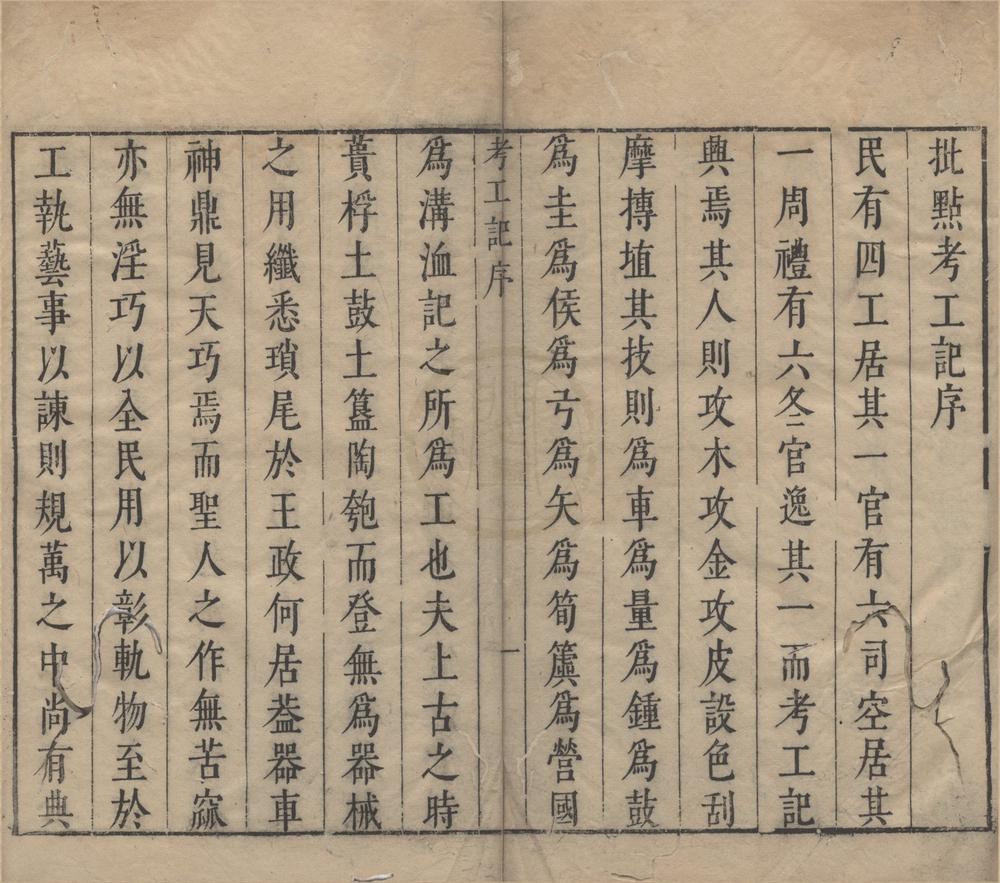 批點考工記序
民有四工居其一官有六司空居其
一周禮有六冬官逸其一而考工記
興焉其人則攻木攻金攻皮設色刮
摩摶埴其技則爲車爲量爲鍾爲鼓
爲圭爲侯爲弓爲矢爲筍簴爲營國
考工記序 一
爲溝洫記之所爲工也夫上古之時
蕢桴土鼓土簋陶匏而登無爲器械
之用纖悉瑣尾於王政何居葢器車
神鼎見天巧焉而聖人之作無苦窳
亦無淫巧以全民用以彰軌物至於
工執藝事以諫則規萬之中尚有典